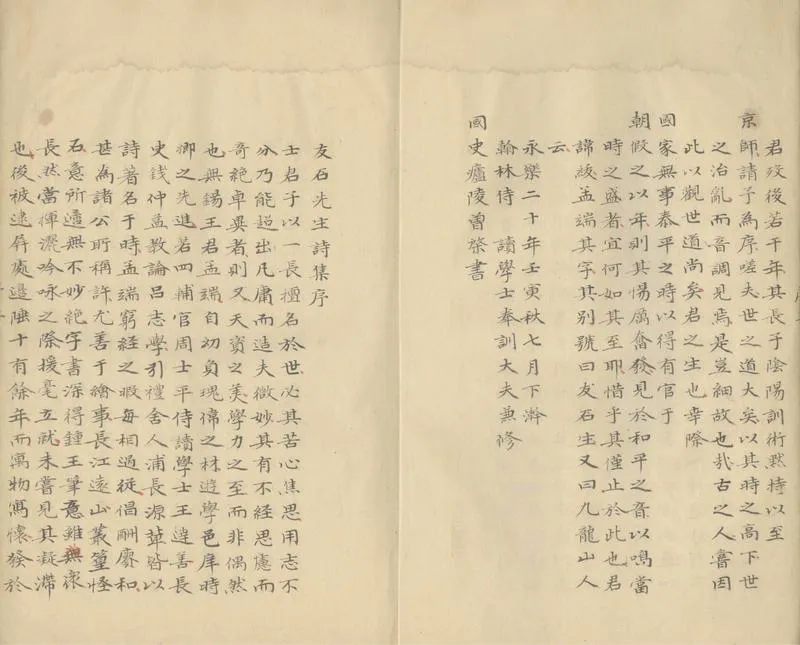 君歿後若干年其長子陰陽訓術默持以至
京師請予為序嗟夫世之道大矣以其時之高下世
之治亂而音調見焉是豈細故也哉古之人嘗因
此以觀世道尚矣君之生也幸際
國家無事泰平之時以得有官于
朝假之以年則其惕厲奮發見於和平之音以鳴當
時之盛者宜何如其至耶惜乎其僅止於此也君
諱紱孟端其字其別號曰友石生又曰九龍山人
云
永樂二十年壬寅秋七月下澣
翰林侍讀學士奉訓大夫兼修
國史廬陵曾棨書
友石先生詩集序
士君子以一長擅名於世必其苦心焦思用志不
分乃能超出凡庸而造夫微妙其有不經思慮而
奇絕卓異者則又天資之美學力之至而非偶然
也無錫王君孟端自幼負瑰偉之材遊學邑庠時
卿之先進若四輔官周士平侍讀學士王達善長
史錢仲益教諭呂志學引禮舍人浦長源輩皆以
詩著名于時孟端窮經之暇每相過從倡酬賡和
甚為諸公所稱許尤善于繪事長江遠山叢篁怪
石意所適無不妙絕字書深得鍾王筆意雖無求
長然當揮灑吟咏之際援毫立就未嘗見其凝滯
也後被逮屏處邊陲十有餘年而寓物寫懷發於